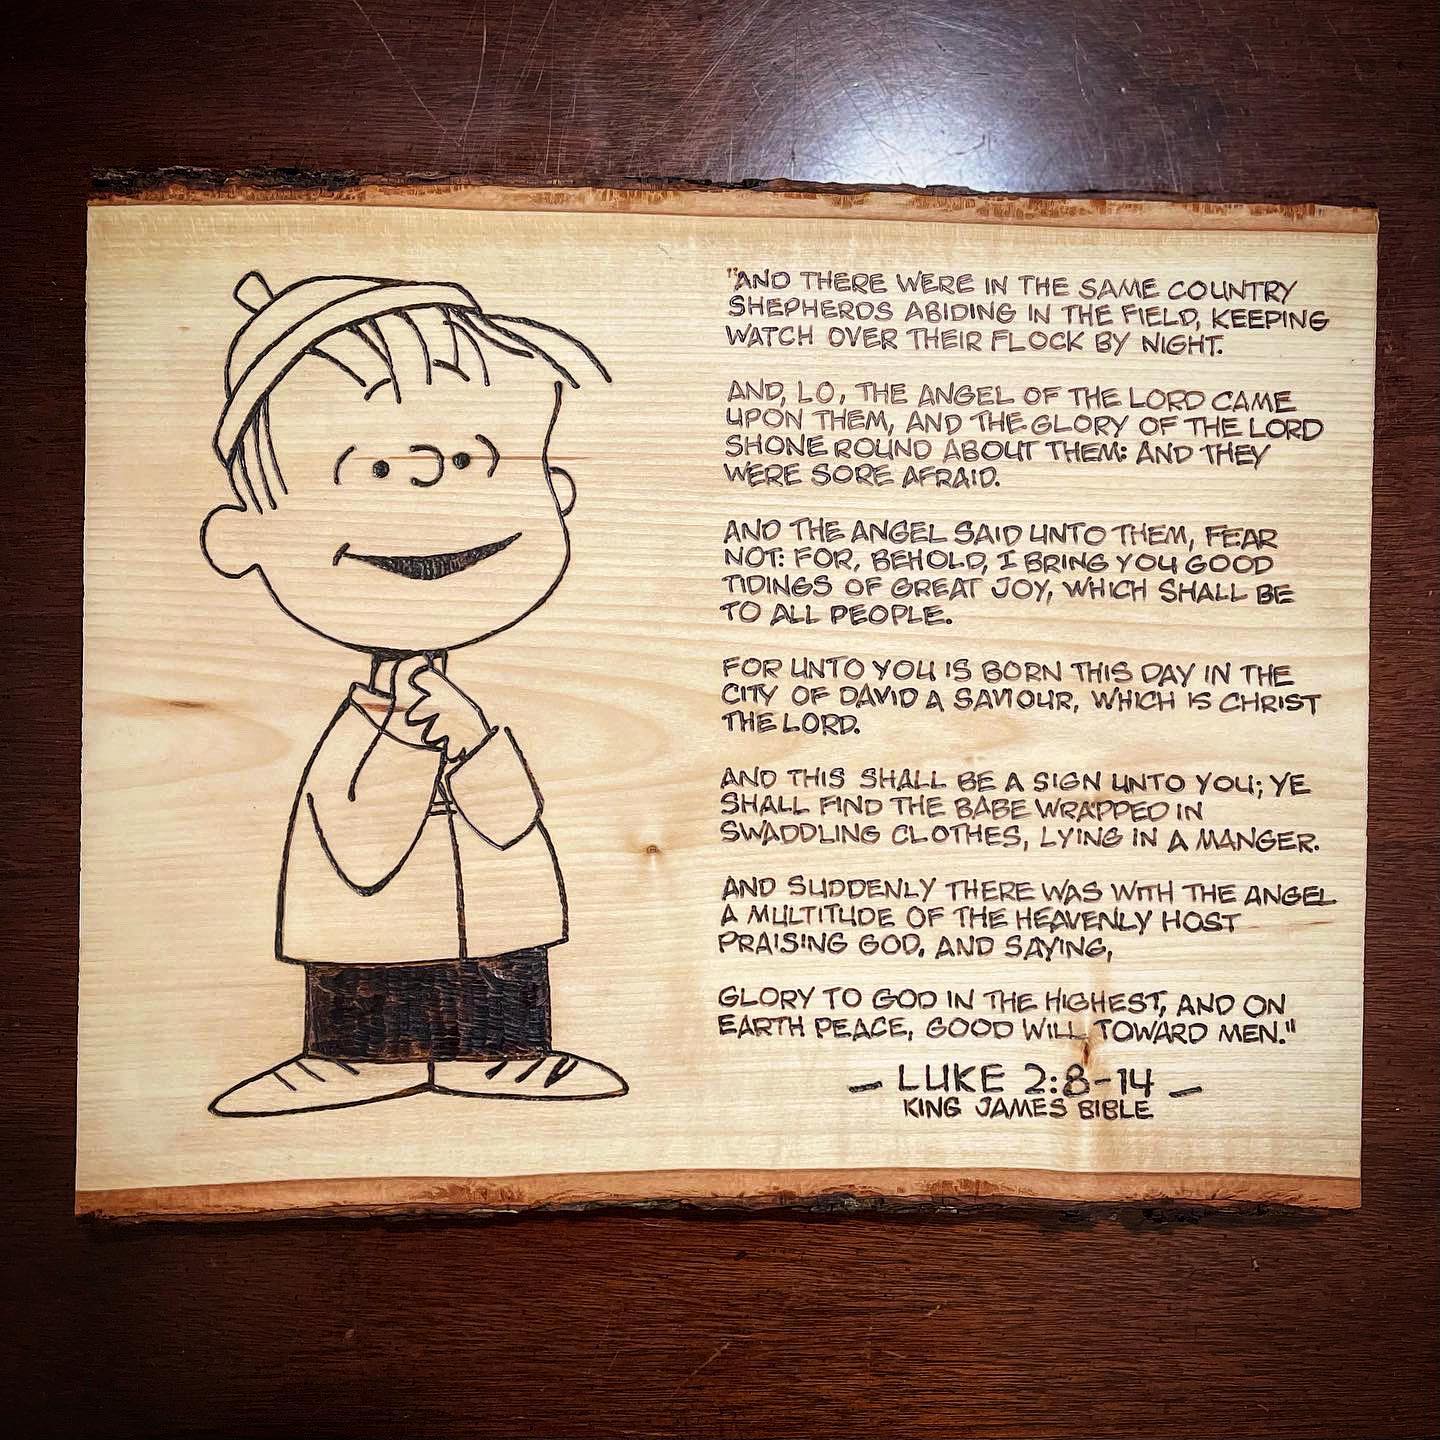 "AND THERE WERE IN THE SAME COUNTRY
SHEPHERDS ABIDING IN THE FIELD, KEEPING
WATCH OVER THEIR FLOCK BY NIGHT.
AND, LO, THE ANGEL OF THE LORD CAME
UPON THEM, AND THE GLORY OF THE LORD
SHONE ROUND ABOUT THEM: AND THEY
WERE SORE AFRAID.
AND THE ANGEL SAID UNTO THEM, FEAR
NOT: FOR, BEHOLD, I BRING YOU GOOD
TIDINGS OF GREAT JOY, WHICH SHALL BE
TO ALL PEOPLE.
FOR UNTO YOU IS BORN THIS DAY IN THE
CITY OF DAVID A SAVIOUR, WHICH IS CHRIST
THE LORD.
AND THIS SHALL BE A SIGN UNTO YOU; YE
SHALL FIND THE BABE WRAPPED IN
SWADDLING CLOTHES, LYING IN A MANGER.
AND SUDDENLY THERE WAS WITH THE ANGEL
A MULTITUDE OF THE HEAVENLY HOST
PRAISING GOD, AND SAYING,
GLORY TO GOD IN THE HIGHEST, AND ON
EARTH PEACE, GOOD WILL TOWARD MEN."
— LUKE 2:8-14 —
KING JAMES BIBLE